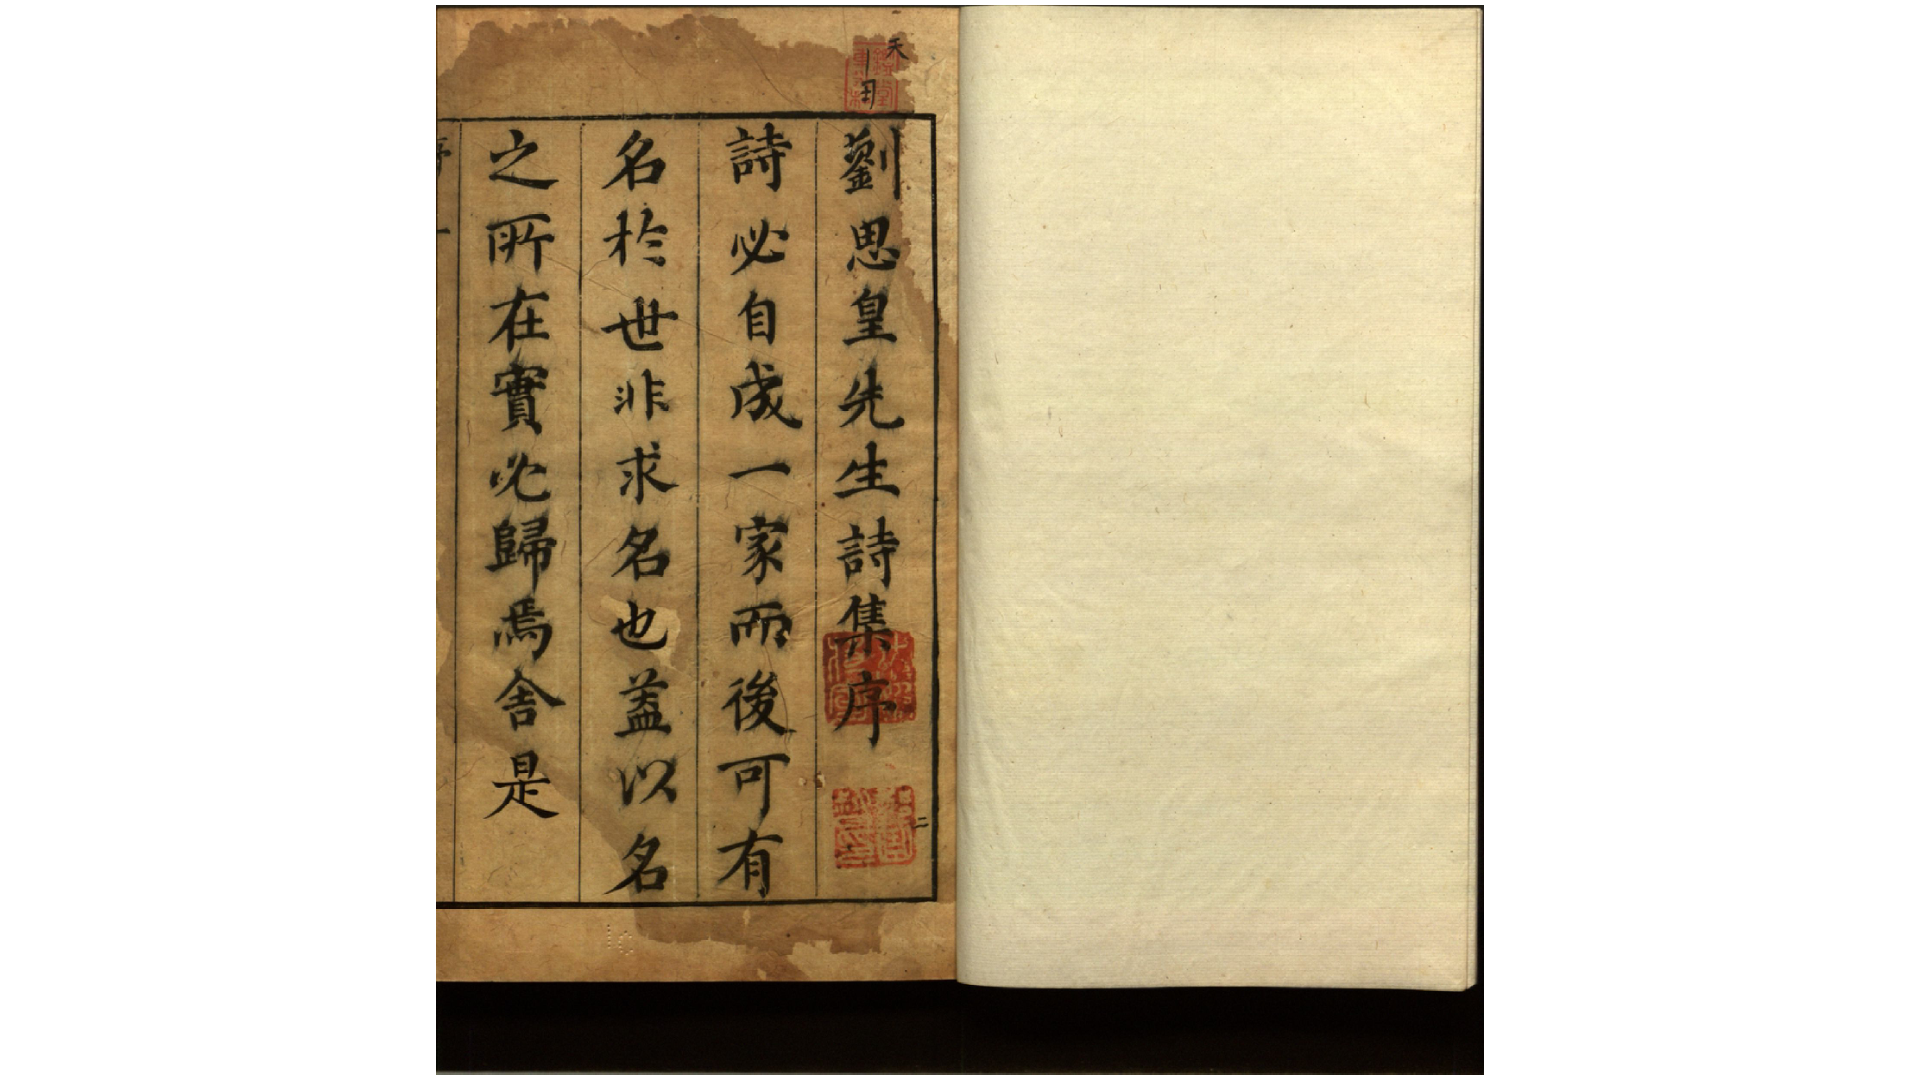 劉思皇先生詩集序
詩必自成一家而後可有
名於世非求名也蓋以名
之所在實必歸焉舍是
天
二